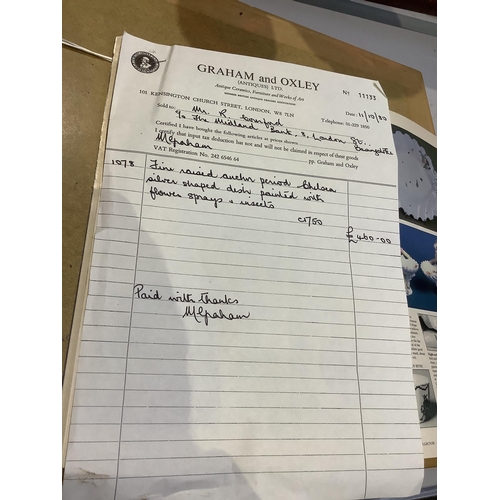 GRAHAM and OXLEY
(ANTIQUES) LTD.
Antique Ceramics, Furniture and Works of Art
No 11133
101 KENSINGTON CHURCH STREET, LONDON, W8 7LN
Date: 11/10/80
Telephone: 01-229 1850
Sold to: Mr. R
c/o The Midland Bank, 8, London St.,
Certified I have bought the following articles at prices shewn.
I certify that input tax deduction has not and will not be claimed in respect of these goods
MGraham pp. Graham and Oxley
VAT Registration No. 242 6546 64
1078 Fine raised anchor period Chelsea
silver shaped dish painted with
flower sprays + insects
c1750 £460-00
Paid with thanks
MGraham